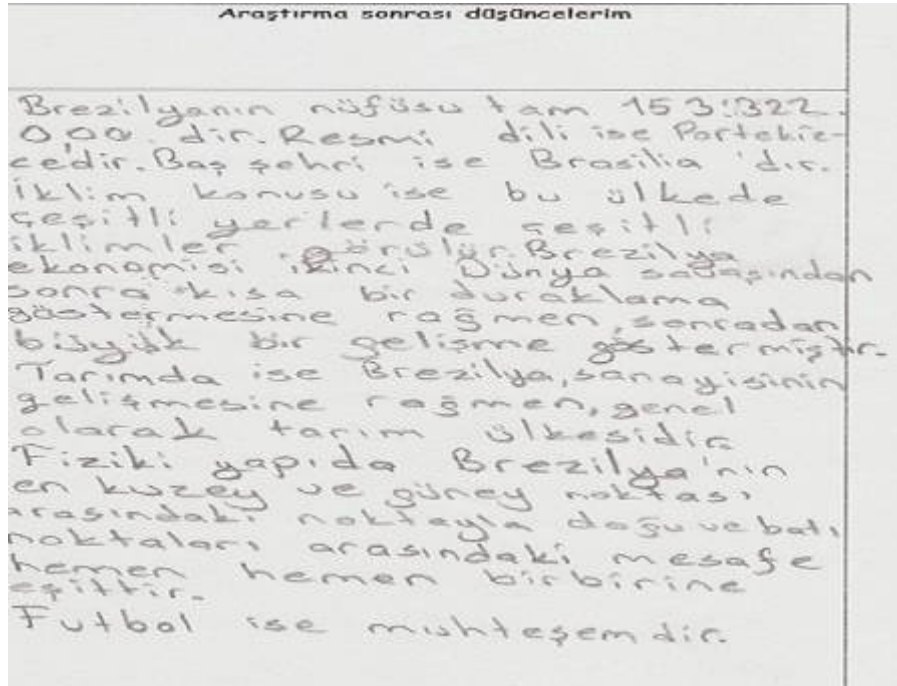 Araştırma sonrası düşüncelerim
Brezilyanın nüfüsu tam 153.322.
000 dir. Resmi dili ise Portekiz-
cedir. Baş şehri ise Brasilia 'dır.
İklim konusu ise bu ülkede
çeşitli yerlerde çeşitli
iklimler görülür. Brezilya
ekonomisi ikinci Dünya savaşından
sonra kısa bir duraklama
göstermesine rağmen, sonradan
büyük bir gelişme göstermiştir.
Tarımda ise Brezilya, sanayisinin
gelişmesine rağmen, genel
olarak tarım ülkesidir.
Fiziki yapıda Brezilya'nın
en kuzey ve güney noktası
arasındaki noktayla doğu ve batı
noktaları arasındaki mesafe
hemen hemen birbirine
eşittir.
Futbol ise muhteşemdir.